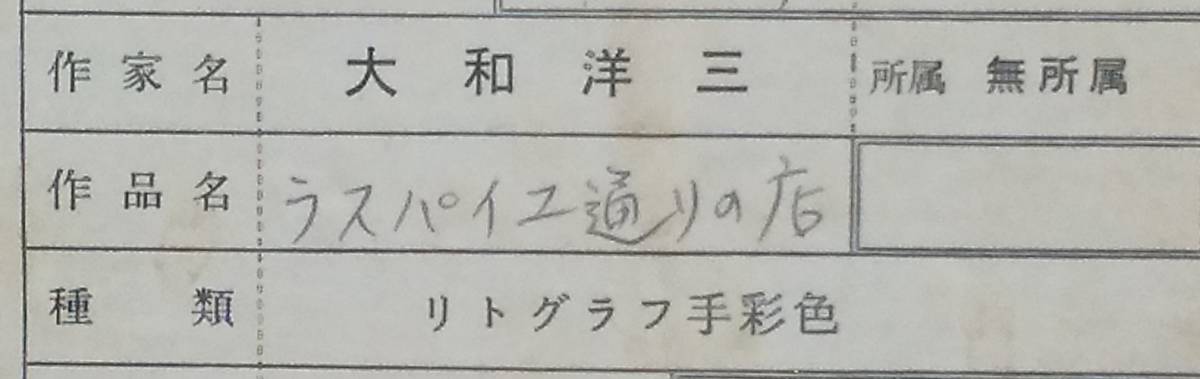 作家名 大和洋三 所属 無所属
作品名 ラスパイエ通りの店
種類 リトグラフ手彩色